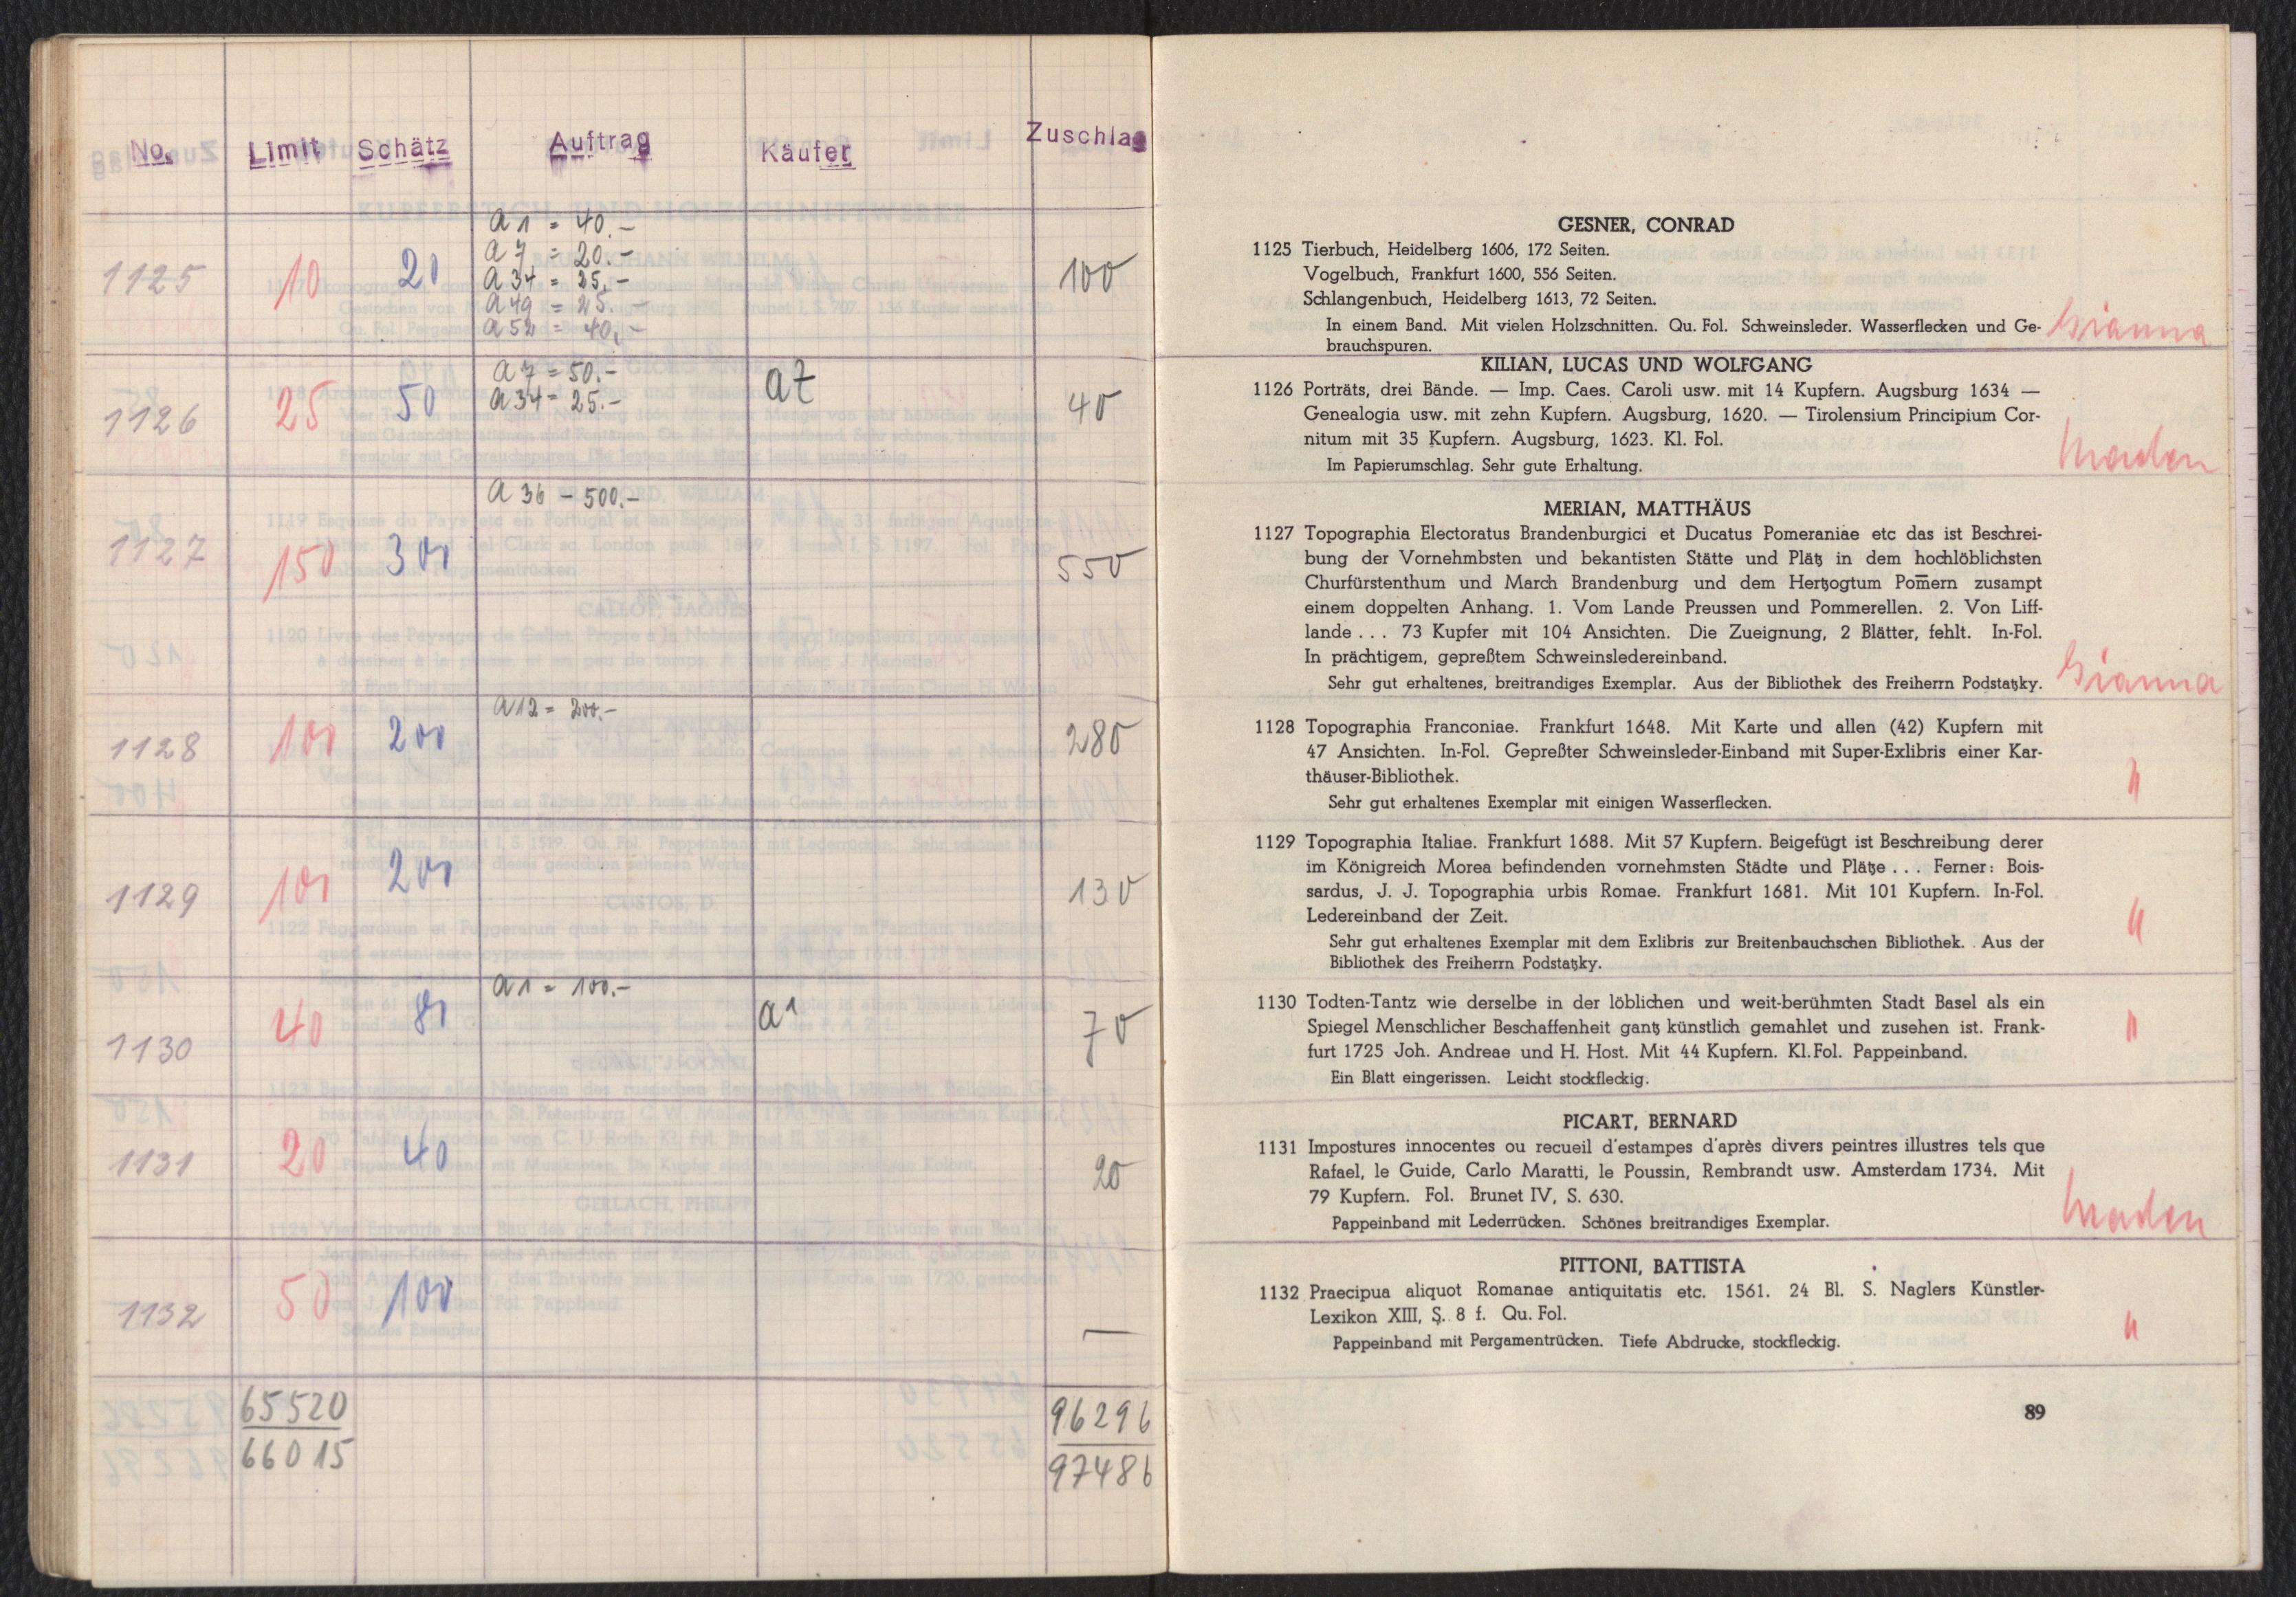 No. Limit Schätz Auftrag Käufer Zuschlag
a 1 = 40.–
a 7 = 20.–
1125 10 20 a 34 = 25.– 100
a 49 = 25.–
a 52 = 40.–
a 7 = 50.– a7
1126 25 50 a 34 = 25.– 40
a 36 – 500.–
1127 150 300 550
a 12 = 200.–
1128 100 200 280
1129 100 200 130
a 1 = 100.–
1130 40 80 a1 70
1131 20 40 20
1132 50 100 —
65520 96296
66015 97486
GESNER, CONRAD
1125 Tierbuch, Heidelberg 1606, 172 Seiten.
Vogelbuch, Frankfurt 1600, 556 Seiten.
Schlangenbuch, Heidelberg 1613, 72 Seiten.
In einem Band. Mit vielen Holzschnitten. Qu. Fol. Schweinsleder. Wasserflecken und Ge-
brauchspuren.
KILIAN, LUCAS UND WOLFGANG
1126 Porträts, drei Bände. — Imp. Caes. Caroli usw. mit 14 Kupfern. Augsburg 1634 —
Genealogia usw. mit zehn Kupfern. Augsburg, 1620. — Tirolensium Principium Cor-
nitum mit 35 Kupfern. Augsburg, 1623. Kl. Fol.
Im Papierumschlag. Sehr gute Erhaltung.
MERIAN, MATTHÄUS
1127 Topographia Electoratus Brandenburgici et Ducatus Pomeraniae etc das ist Beschrei-
bung der Vornehmbsten und bekantisten Stätte und Plätz in dem hochlöblichsten
Churfürstenthum und March Brandenburg und dem Hertzogtum Pom̄ern zusampt
einem doppelten Anhang. 1. Vom Lande Preussen und Pommerellen. 2. Von Liff-
lande . . . 73 Kupfer mit 104 Ansichten. Die Zueignung, 2 Blätter, fehlt. In-Fol.
In prächtigem, gepreßtem Schweinsledereinband.
Sehr gut erhaltenes, breitrandiges Exemplar. Aus der Bibliothek des Freiherrn Podstatzky.
1128 Topographia Franconiae. Frankfurt 1648. Mit Karte und allen (42) Kupfern mit
47 Ansichten. In-Fol. Gepreßter Schweinsleder-Einband mit Super-Exlibris einer Kar-
thäuser-Bibliothek.
"
Sehr gut erhaltenes Exemplar mit einigen Wasserflecken.
1129 Topographia Italiae. Frankfurt 1688. Mit 57 Kupfern. Beigefügt ist Beschreibung derer
im Königreich Morea befindenden vornehmsten Städte und Plätze . . . Ferner: Bois-
sardus, J. J. Topographia urbis Romae. Frankfurt 1681. Mit 101 Kupfern. In-Fol.
Ledereinband der Zeit. "
Sehr gut erhaltenes Exemplar mit dem Exlibris zur Breitenbauchschen Bibliothek. Aus der
Bibliothek des Freiherrn Podstatzky.
1130 Todten-Tantz wie derselbe in der löblichen und weit-berühmten Stadt Basel als ein
Spiegel Menschlicher Beschaffenheit gantz künstlich gemahlet und zusehen ist. Frank- "
furt 1725 Joh. Andreae und H. Host. Mit 44 Kupfern. Kl. Fol. Pappeinband.
Ein Blatt eingerissen. Leicht stockfleckig.
PICART, BERNARD
1131 Impostures innocentes ou recueil d'estampes d'après divers peintres illustres tels que
Rafael, le Guide, Carlo Maratti, le Poussin, Rembrandt usw. Amsterdam 1734. Mit
79 Kupfern. Fol. Brunet IV, S. 630.
Pappeinband mit Lederrücken. Schönes breitrandiges Exemplar.
PITTONI, BATTISTA
1132 Praecipua aliquot Romanae antiquitatis etc. 1561. 24 Bl. S. Naglers Künstler-
Lexikon XIII, S. 8 f. Qu. Fol. "
Pappeinband mit Pergamentrücken. Tiefe Abdrucke, stockfleckig.
89